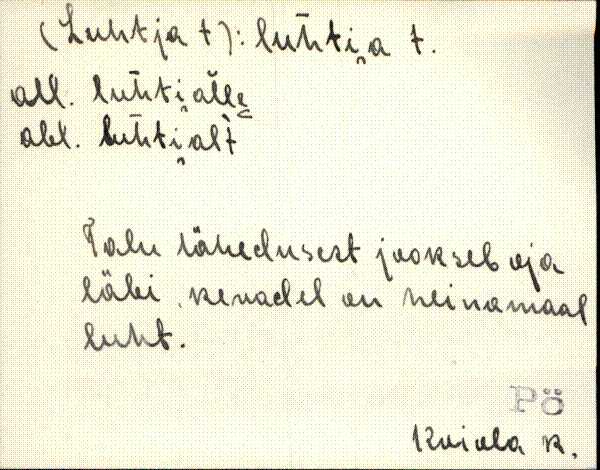 (Luhtja t): lūh̄ti̯a t.
all. lūh̄ti̯alle
abl. lūh̄ti̯alt
Talu lähedusest jookseb oja
läbi, kevadel on heinamaal
luht.
Pö
Kuiala k.